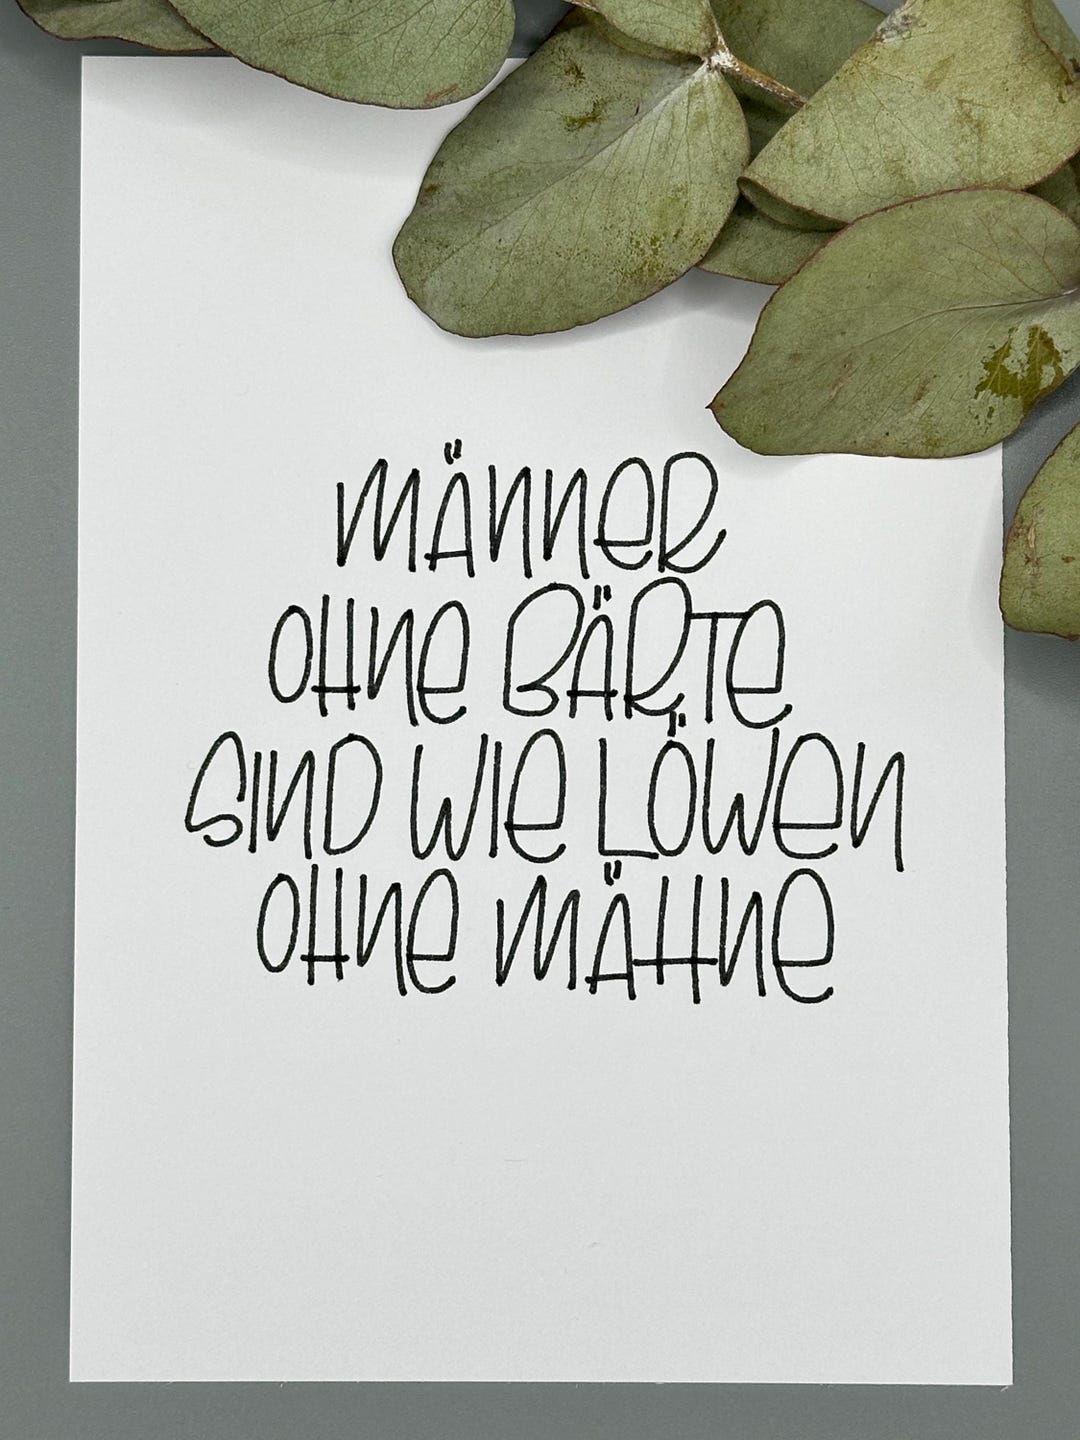 MÄNNER
OHNE BÄRTE
SIND WIE LÖWEN
OHNE MÄHNE